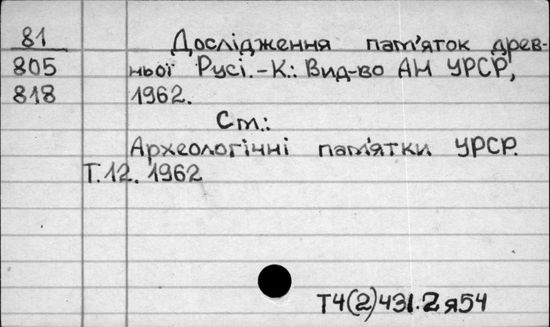 81 Дослідження пам'яток древ-
805 ньої Русі. - К.: Вид-во АН УРСР,
818 1962.
Ст.:
Археологічні пам'ятки УРСР.
Т.12. 1962
Т4(2)431.2я54